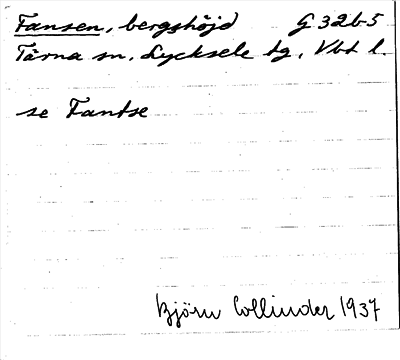 Fansen, bergshöjd G 32b5
Tärna sn, Lycksele lg, Vbt l.
se Fantse
Björn Collinder 1937